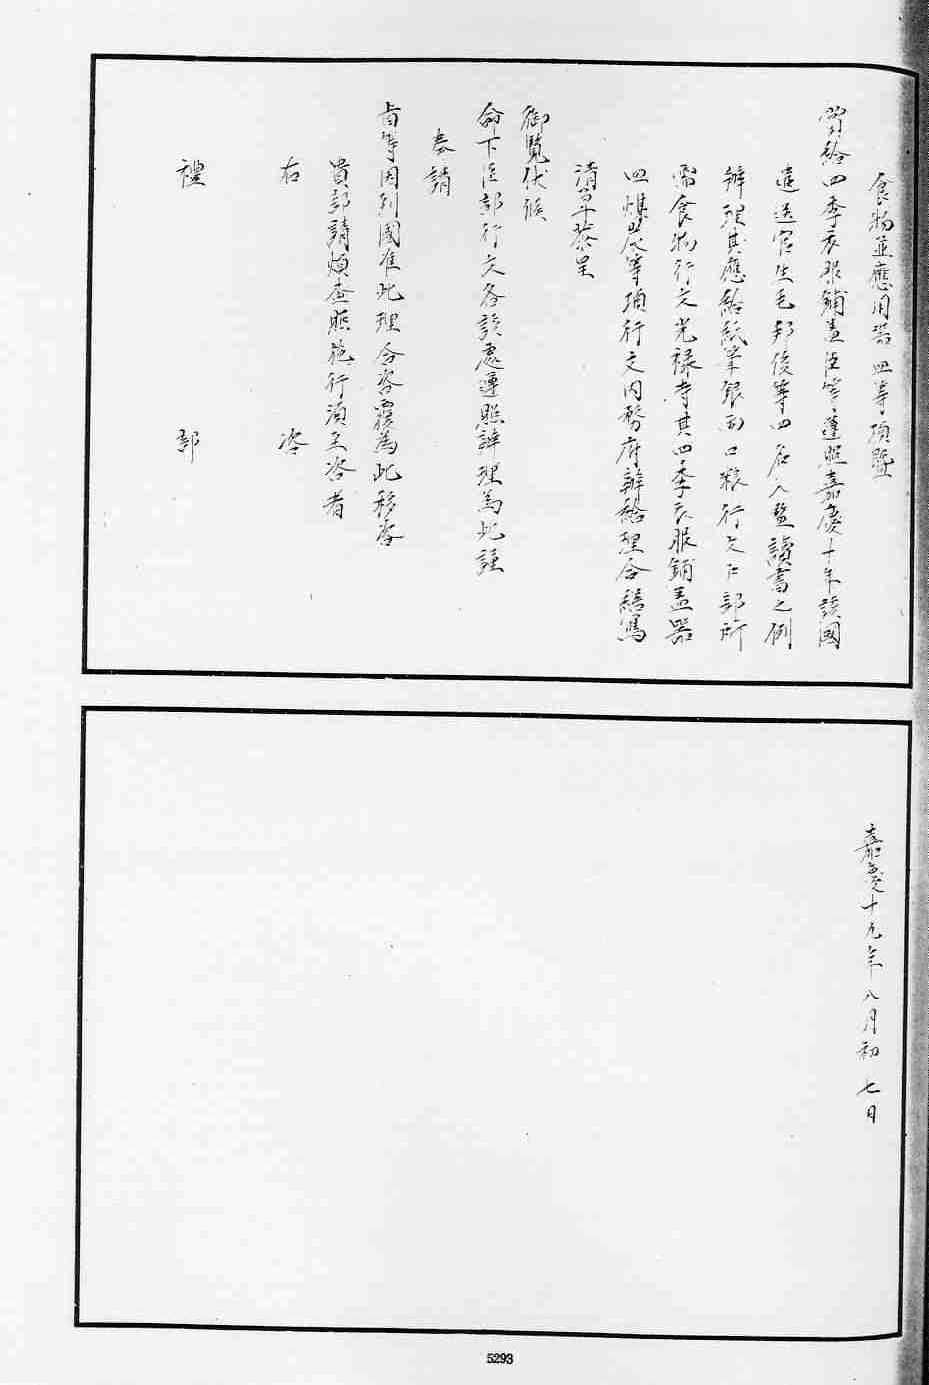 食物並應用器皿等項暨
賞給四季衣服鋪蓋臣等謹照嘉慶十年該國
進送官生毛邦俊等四名入監讀書之例
辦理其應給紙筆銀兩口粮行文戶部所
需食物行文光禄寺其四季衣服鋪盖器
皿煤炭等項行文内務府辦給理合繕寫
清單恭呈
御覽伏候
命下臣部行文各該處遵照辦理為此謹
奏請
旨等因到國准此理合咨覆為此移咨
貴部請煩查照施行須至咨者
右 咨
禮 部
嘉慶十九年八月初七日
5293